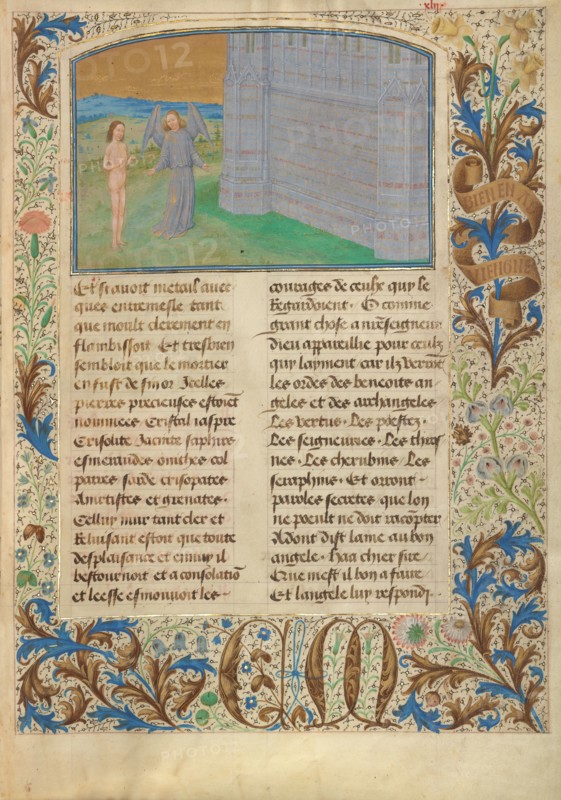 xliiⁱ
Et si auoit metail auec
ques entremesle tant
que moult clerement en
flambissoit Et tresbien
sembloit que le mortier
en fust de fin or Icelles
pierres precieuses estoiēt
nommees Cristal iaspre
Crisolite Jacinte saphirs
esmeraudes oniches
sarde crisopates
Amatistes et grenates.
Celluy mur tant cler et
Reluisant estoit que toute
desplaisance et ennuy il
bestournoit et a consolatiō
et leesse esmouuoit les
courages de ceulx quy le
Regardoient. O comme
grant chose a nr̄eseigneur
dieu appareillie pour ceulz
quy layment car ilz verront
les ordes des benoites an
geles et des archangeles
Les vertus. Les poestez.
Les seigneuries. Les thros
nes. Les cherubins Les
seraphins. Et orront
paroles secretes que lon
ne poeult ne doit racōpter
Adont dist lame au bon
angele. Haa chier sire
Cy ne mest il bon a faire
Et langele luy respondi.
BIEN EN
AVIENGNE
CM
PHOTO12